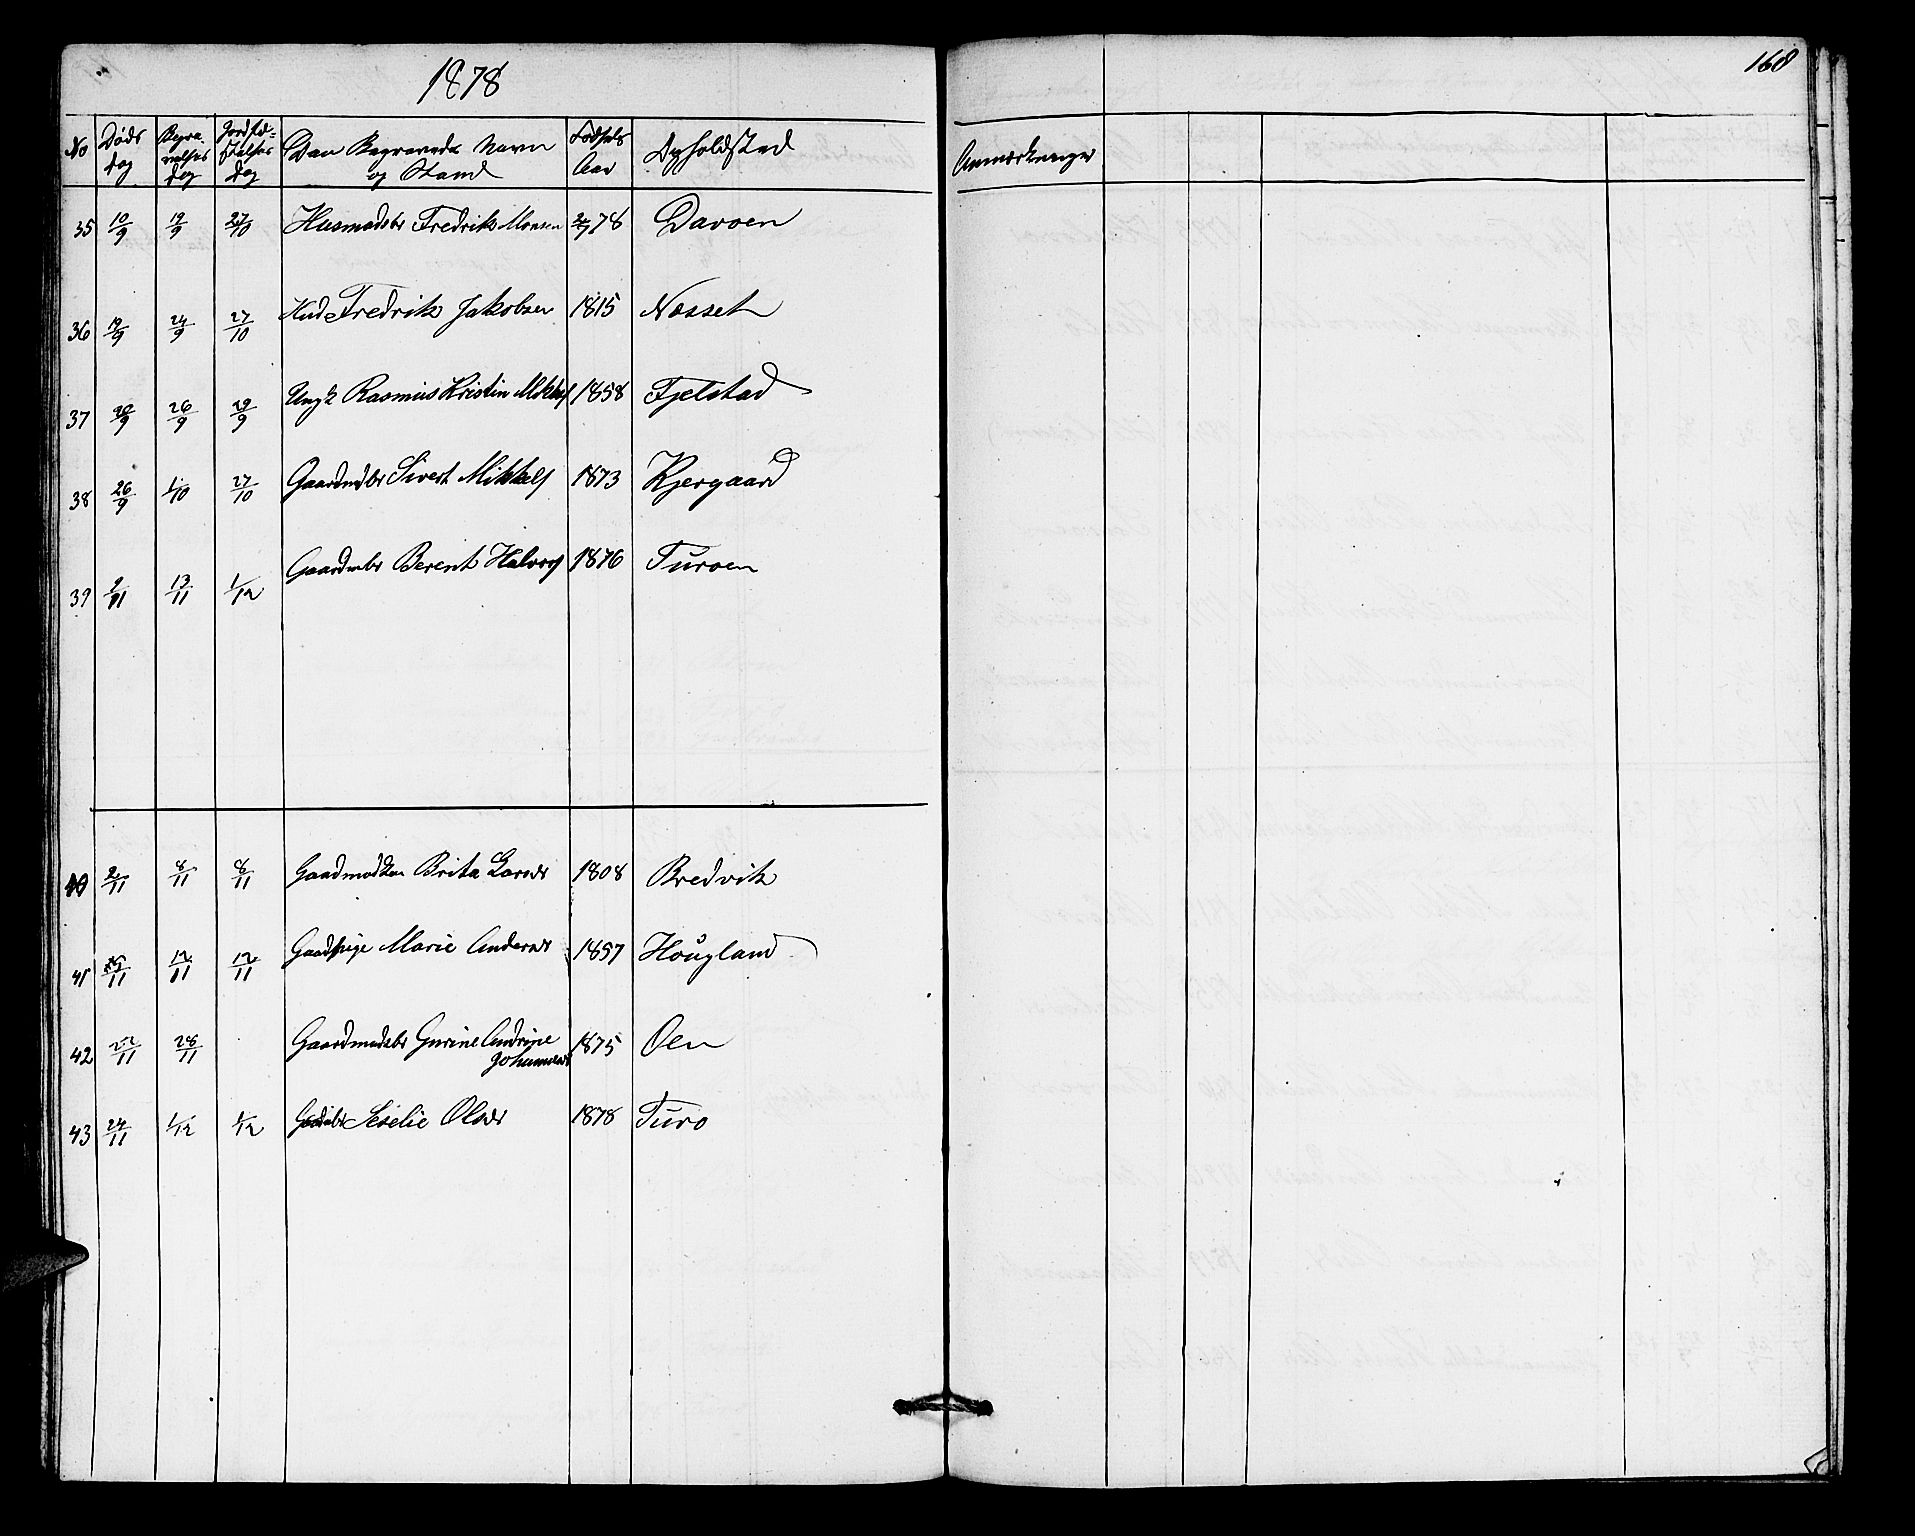 1878
168
No | Døds Dag | Begravelses Dag | Jordfæstelses Dag | Den Begravedes Navn og Stand | Fødsels Aar | Opholdsted | Anmærkninger
35 | 10/9 | 19/9 | 27/10 | Husmdsbr Fredrik Monsen | 78 | Davøen
36 | 19/9 | 24/9 | 27/10 | Fredrik Jakobsen | 1815 | Nesset
37 | 20/9 | 26/9 | 29/9 | Ungk Rasmus Kristin | 1858 | Fjelstad
38 | 26/9 | 1/10 | 27/10 | Gaardmdbr Sivert Mikkels | 1873 | Kjergaard
39 | 9/11 | 13/11 | 1/12 | Gaardmbr Berent Halvors | 1876 | Turøen
40 | 2/11 | 8/11 | 8/11 | Brita Larsdr | 1808 | Bredvik
41 | /11 | 12/11 | 12/11 | Gaardpige Marie Andersdr | 1857 | Hougland
42 | 22/11 | 28/11 | Gaardmdsbr Gurine Andrine
Johannesdr | 1875 | Oen
43 | 24/11 | 1/12 | 1/12 | Seselie Olsdr | 1878 | Turø